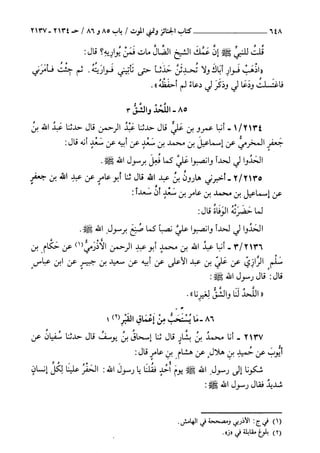 ٦٤٨ كتاب الجنائز ولتي الموت / باب ٨٥ و ٨٦ / حـ ٢١٣٤ - ٢١٣٧
قُلتُ للنبيِّ ﷺ إنَّ عَمَّكَ الشيخَ الضَّالَّ ماتَ فَمَنْ يُوارِيهِ؟ قال:
«اذْهَبْ فَوارِ أَباكَ ولا تُحدِثَنَّ حَدَثاً حتى تَأْتِيَني فَوارَيْتُهُ. ثم جِئْتُ فأمَرَني
فاغتَسلتُ ودَعَا لي وذَكَرَ لي دعاءً لم أَحفَظْهُ».
٨٥ - اللَّحْدُ والشَّقُّ ٣
١/٢١٣٤ - أنبا عمرو بن عَليٍّ قال حدثنا عَبْدُ الرحمن قال حدثنا عبدُ اللهِ بنُ
جَعفرٍ المخرميُّ عن إسماعيلَ بن محمد بن سَعْدٍ عن أبيه عن سَعْدٍ أنه قال:
الحَدُوا لي لحداً وانصبوا عَليَّ كما فُعِلَ برسول الله ﷺ.
٢/٢١٣٥ - أخبرني هارونُ بنُ عبد الله قال ثنا أبو عامرٍ عن عبدِ اللهِ بن جعفرٍ
عن إسماعيل بن محمد بن عامر بن سَعْدٍ أنَّ سَعداً:
لما حَضَرَتْهُ الوَفَاةُ قال:
الحَدُوا لي لحداً وانصبوا عَليَّ نصباً كما صُنِعَ برسولِ الله ﷺ.
٣/٢١٣٦ - أنبا عبدُ الله بنُ محمدٍ أبو عبد الرحمن الأَذْرَمِيُّ (١) عن حَكَّامِ بن
سَلْمٍ الرَّازِيّ عن عَليِّ بن عبد الأعلى عن أبيه عن سعيد بن جبيرٍ عن ابن عباسٍ
قال: قال رسول الله ﷺ:
«اللَّحدُ لَنَا والشَّقُّ لِغَيرِنا».
٨٦ - مَا يُسْتَحَبُّ مِنْ إعْمَاقِ القَبْرِ (٢) ١
٢١٣٧ - أنا محمدُ بنُ بشارٍ قال ثنا إسحاقُ بنُ يوسفُ قال حدثنا سُفيانُ عن
أيوبَ عن حُميدِ بنِ هلالٍ عن هشامِ بنِ عامرٍ قال:
شكونا إلى رسولِ الله ﷺ يومَ أُحُدٍ فقُلنَا يا رسولَ الله: الحَفْرُ علينَا لِكُلِّ إنسانٍ
شديدٌ فقال رسول الله ﷺ:
(١) في ج: الأذربي ومصححة في الهامش.
(٢) بلوغ مقابلة في «ز».